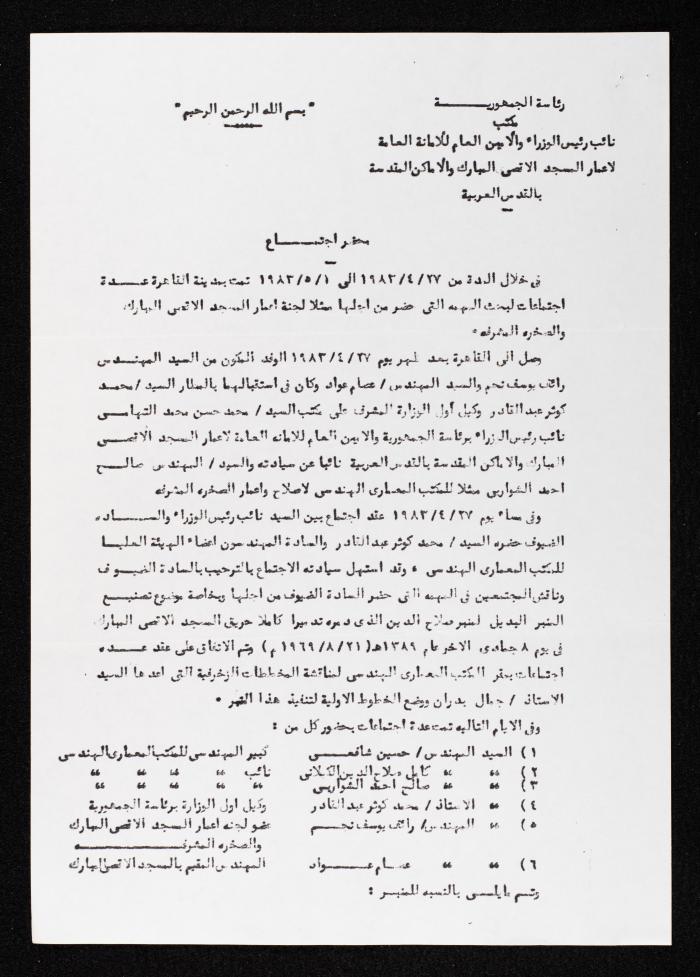 رئاسة الجمهوريـــــــــة
"بسم الله الرحمن الرحيم"
مكتب
نائب رئيس الوزراء والأمين العام للأمانة العامة
لاعمار المسجد الاقصى المبارك والاماكن المقدسة
بالقدس العربية
محضر اجتمـــــــاع
فى خلال المدة من ١٩٨٣/٤/٢٧ الى ١٩٨٣/٥/١ تمت بمدينة القاهرة عـــدة
اجتماعات لبحث المهمه التى حضر من اجلها ممثلا لجنة اعمار المسجد الاقصى المبارك
والصخره المشرفه ٠
وصل الى القاهرة بعد ظهر يوم ١٩٨٣/٤/٢٧ الوفد المكون من السيد المهنـــدس
رائف يوسف نجم والسيد المهندس / عصام عواد وكان فى استقبالهما بالمطار السيد / محمـــد
كوثر عبد القادر وكيل أول الوزارة المشرف على مكتب السيد / محمد حسن محمد التهامـــى
نائب رئيس الوزراء برئاسة الجمهورية والامين العام للامانه العامة لاعمار المسجد الاقصـــى
المبارك والاماكن المقدسة بالقدس العربية نائبا عن سيادته والسيد / المهندس صالـــح
احمد الشواربى ممثلا للمكتب المعمارى الهندسى لاصلاح واعمار الصخره المشرفه
وفى مساء يوم ١٩٨٣/٤/٢٧ عقد اجتماع بين السيد نائب رئيس الوزراء والســـاده
الضيوف حضره السيد / محمد كوثر عبد القادر والسادة المهندسون اعضاء الهيئة العليـا
للمكتب المعمارى الهندسى ٠ وقد استهل سيادته الاجتماع بالترحيب بالسادة الضيـوف
وناقش المجتمعين فى المهمه التى حضر السادة الضيوف من اجلها وبخاصة موضوع تصنيـع
المنبر البديل لمنبر صلاح الدين الذى دمره تدميرا كاملا حريق المسجد الاقصى المبارك
فى يوم ٨ جمادى الاخر عام ١٣٨٩هـ (١٩٦٩/٨/٢١ م) وتم الاتفاق على عقد عـــده
اجتماعات بمقر المكتب المعمارى الهندسى لمناقشة المخططات الزخرفية التى اعدها السيد
الاستاذ / جمال بدران ووضع الخطوط الاولية لتنفيذ هذا ٠
وفى الايام التاليه تمت عدة اجتماعات بحضور كل من :
١) السيد المهندس / حسين شافعـــى كبير المهندسى للمكتب المعمارى الهندسى
٢) " " كامل صلاح الدين الكلانى نائب " " " "
٣) " " صالح احمد الشواربى " " " " "
٤) " الاستاذ / محمد كوثر عبد القادر وكيل اول الوزارة برئاسة الجمهورية
٥) " المهندس / رائف يوسف نجـــم عضو لجنه اعمار المسجد الاقصى المبارك
والصخره المشرفـــــــــه
٦) " " عصام عـــــواد المهندس المقيم بالمسجد الاقصى المبارك
وتـم مايلـــى بالنسبه للمنبـــر :